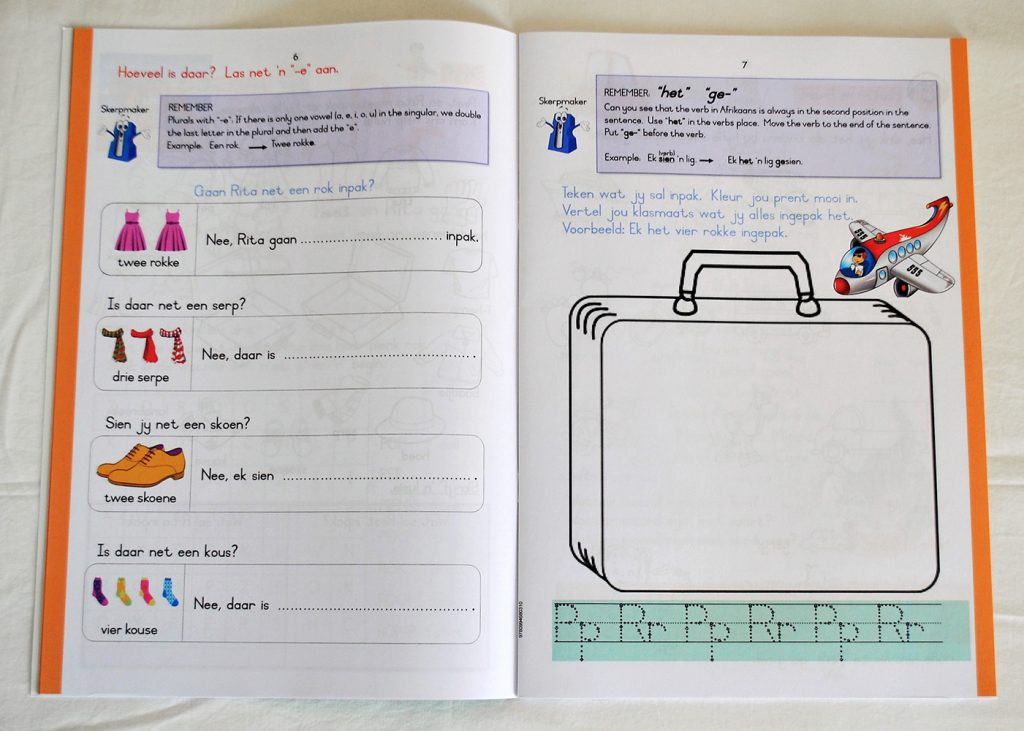 6
Hoeveel is daar? Las net 'n "-e" aan.
Skerpmaker
REMEMBER
Plurals with "-e": If there is only one vowel (a, e, i, o, u) in the singular, we double
the last letter in the plural and then add the "e".
Example. Een rok. Twee rokke.
Gaan Rita net een rok inpak?
twee rokke
Nee, Rita gaan ........................................ inpak.
Is daar net een serp?
drie serpe
Nee, daar is ........................................ .
Sien jy net een skoen?
twee skoene
Nee, ek sien ........................................ .
Is daar net een kous?
vier kouse
Nee, daar is ........................................ .
7
Skerpmaker
REMEMBER. "het" "ge-"
Can you see that the verb in Afrikaans is always in the second position in the
sentence. Use "het" in the verbs place. Move the verb to the end of the sentence.
Put "ge-" before the verb.
(verb)
Example. Ek sien 'n lig. Ek het 'n lig gesien.
Teken wat jy sal inpak. Kleur jou prent mooi in.
Vertel jou klasmaats wat jy alles ingepak het.
Voorbeeld: Ek het vier rokke ingepak.
Pp Rr Pp Rr Pp Rr